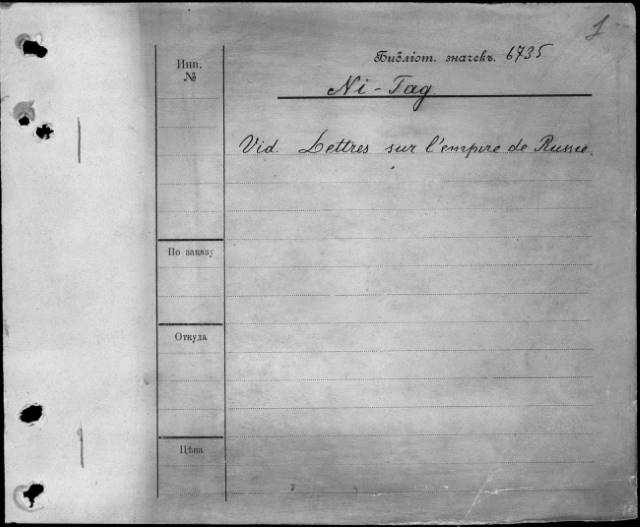 1
Библіот. значекъ. 6735
Инв.
№
Ni-Tag
Vid. Lettres sur l'empire de Russie.
По заказу
Откуда
Цѣна